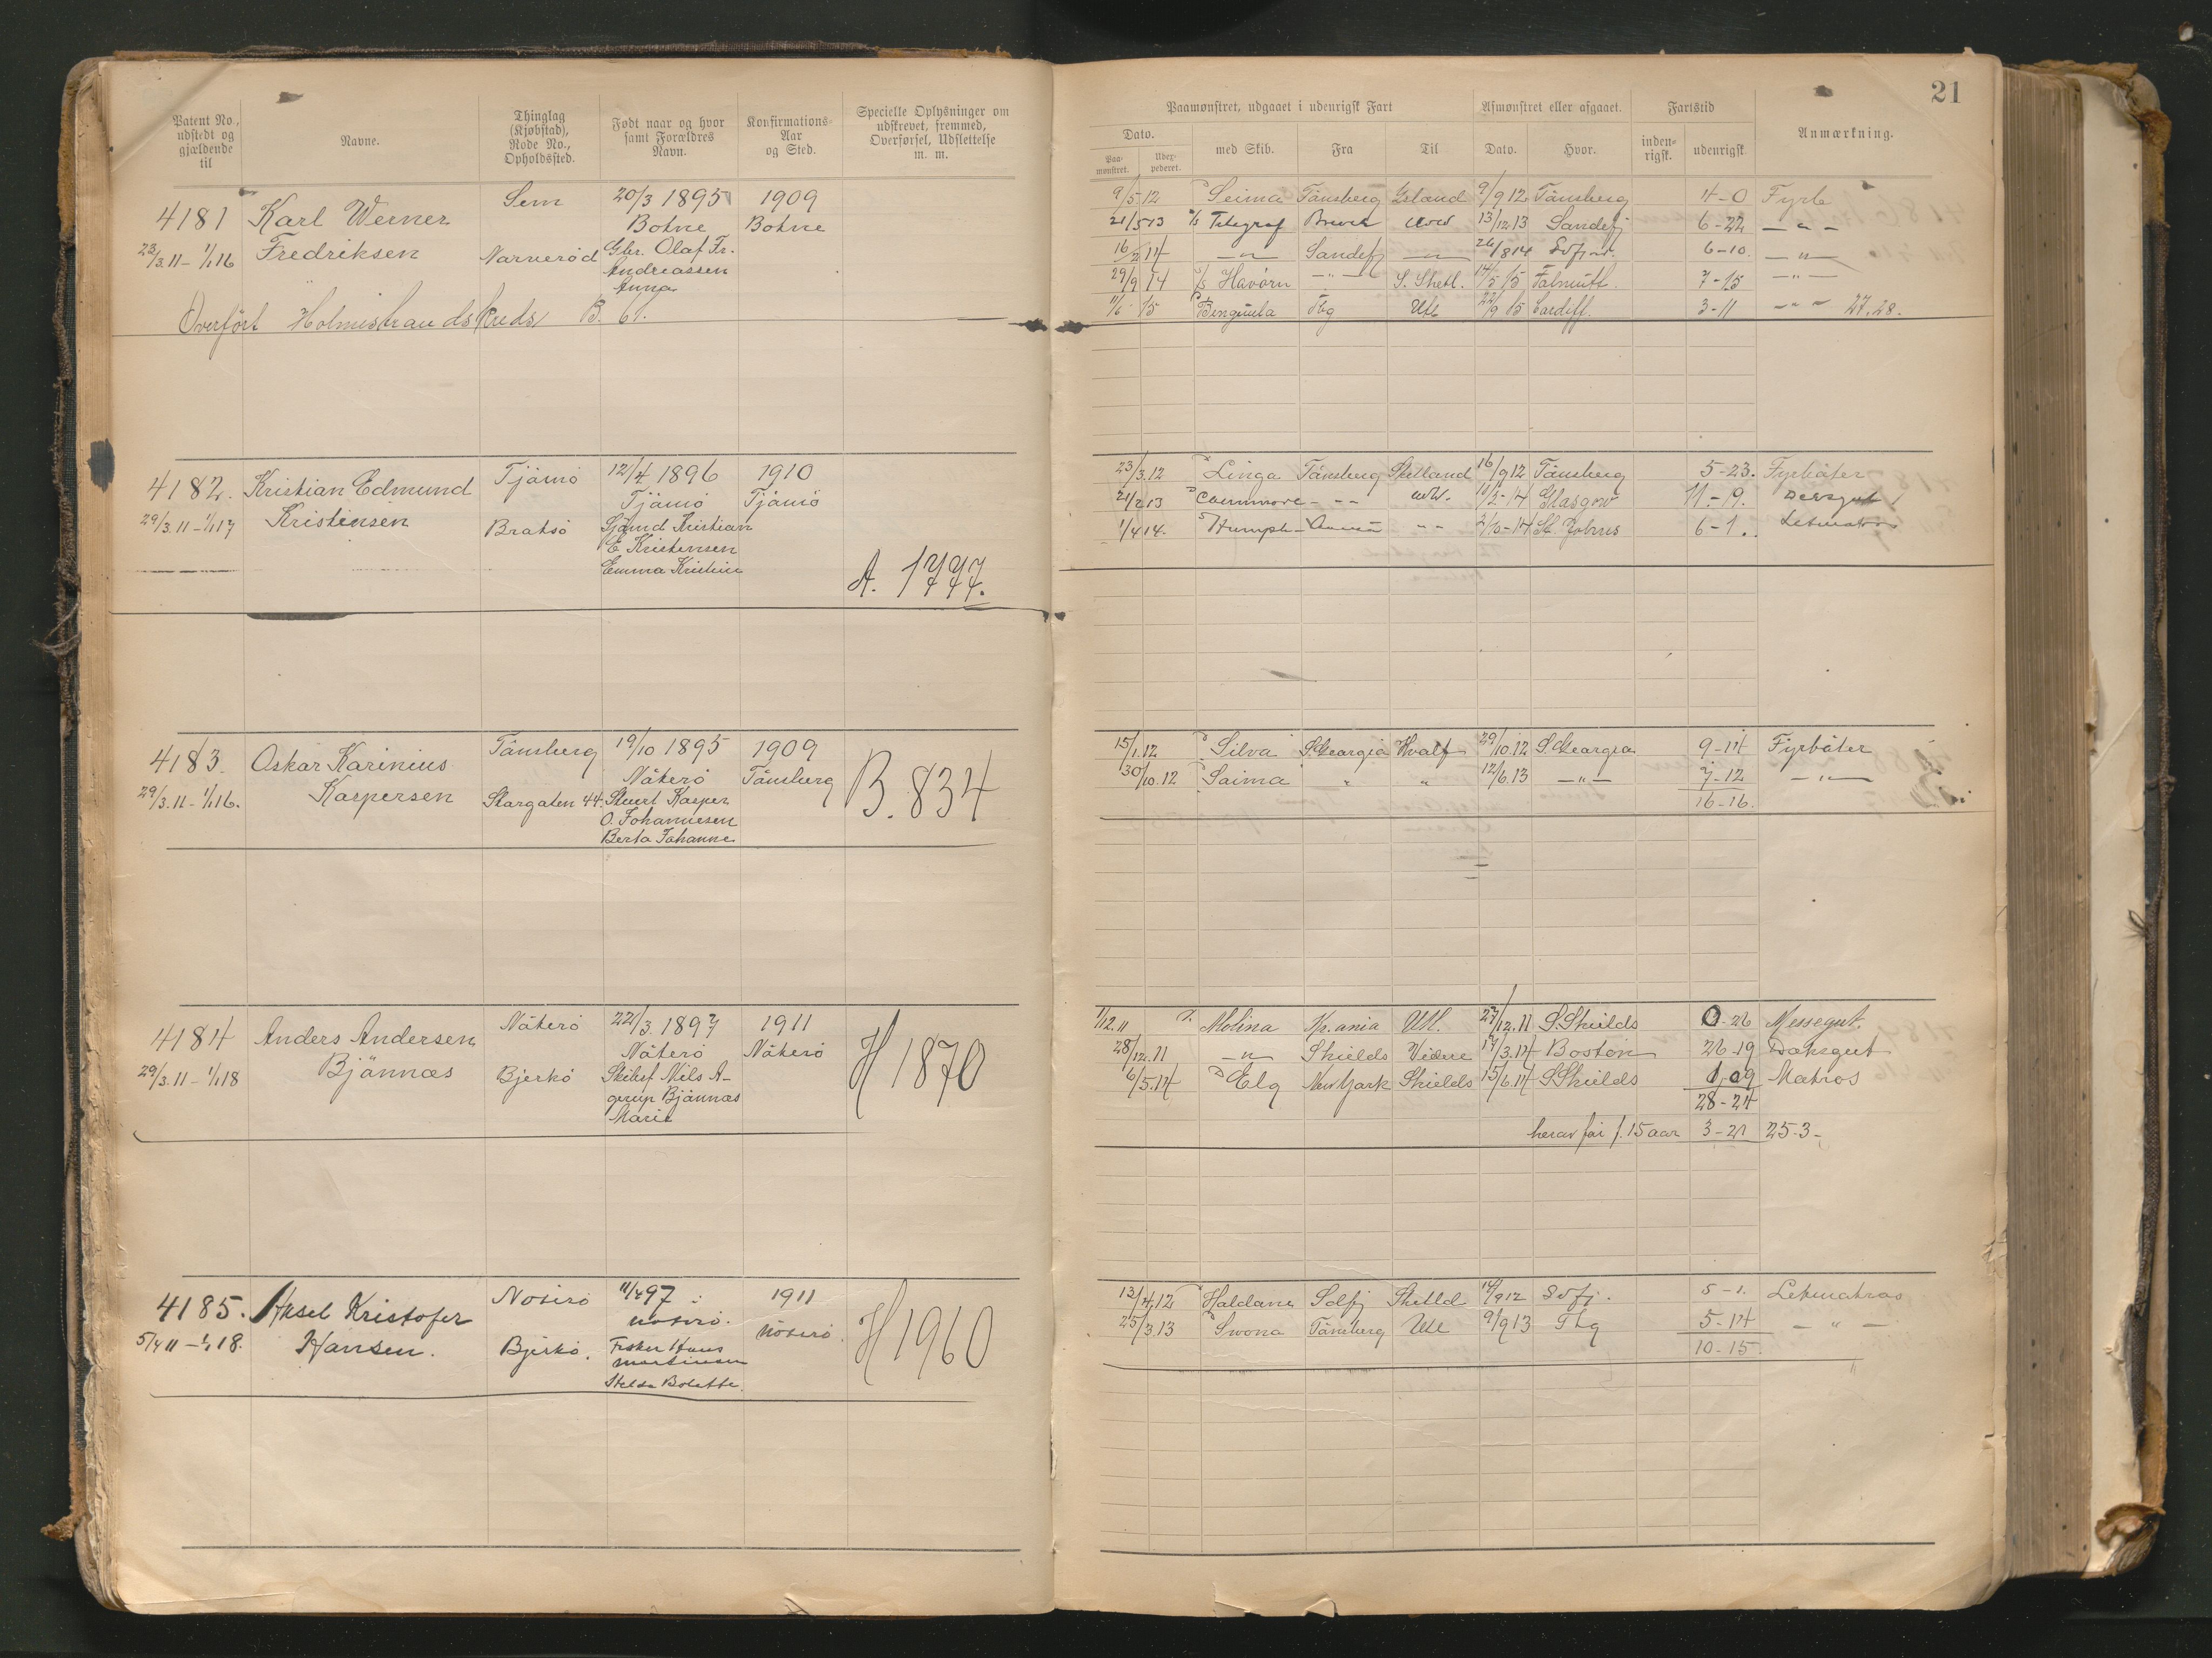 21
Patent No., udstedt og gjældende til
Navne.
Thinglag (Kjøbstad), Rode No., Opholdssted.
Født naar og hvor samt Forældres Navn.
Konfirmations-Aar og Sted.
Specielle Oplysninger om udskrevet, fremmed, Overførsel, Udslettelse m. m.
Paamønstret, udgaaet i udenrigsk Fart
Afmønstret eller afgaaet.
Fartstid
Anmærkning.
Dato.
Paa-mønstret.
Uder-pederet.
med Skib.
Fra
Til
Dato.
Hvor.
inden-rigsk.
udenrigsk
4181 Karl Werner Sem 20/3 1895 1909
Botne Botne
23/3.11 - 1/1 16 Fredriksen Narverød Gbr. Olaf Fr.
Andreassen
Anna
Overført Holmestrands Kreds B. 61.
9/5 12 Seima Tønsberg Island 9/9 12 Tønsberg 4-0 Fyrb
21/5 13 Telegraf Brevik 13/12 13 Sandefj 6-22 - " -
16/2 14 - " - Sandefj - " - 26/8 14 6-10 - " -
29/9 14 Havørn - " - S. Shetl. 14/5 15 Falmuth 7-15 - " -
11/6 15 Benguela Tbg Utl 22/9 15 Cardiff 3-11 - " - 27.28.
4182. Kristian Edmund Tjømø 12/4 1896 1910
Tjømø Tjømø
29/3.11 - 1/1 17 Kristensen Bratsø Sjømd Kristian
E Kristensen
Emma Kristin
A. 1777.
23/3.12 Linga Tønsberg Shetland 16/9 12 Tønsberg 5-23. Fyrbøter
21/2 13 - " - 11/2-14 Glasgow 11-9. Deksgut
1/4 14. - " - 2/10-14 St. Johns 6-1. Letmatros
4183. Oskar Karinius Tønsberg 19/10 1895 1909
Nøterø Tønsberg
29/3.11 - 1/1 16. Kaspersen Storgaten 44. Stuert Kasper
O. Johannesen
Berta Johanne
B. 834
15/1.12 Silva S. Georgia Hvalf 29/10.12 S. Georgia 9-14 Fyrbøter
30/10.12 Saima " " 12/6.13 - " - 7-12 - " -
16-16.
4184 Anders Andersen Nøterø 22/3 1897 1911
Nøterø Nøterø
29/3.11 - 1/1 18 Bjønnæs Bjerkø Skibsf Nils A-
gerup Bjønnæs
Marie
H 1870
1/12.11 Molina Kr.ania Utl. 27/12.11 S. Shields 0-26 Messegut.
28/12.11 - " - Shields Vidre 17/3.14 Boston 26-19 Dæksgut
6/5.14 Elg New York Shields 15/6.14 S. Shields 1-09 Matros
28-24
herav før f. 15 aar 3-21 25-3-
4185. Aksel Kristofer Nøterø 11/4 97 1911
nøterø. nøterø.
5/4 11 - 1/1 18. Hansen. Bjerkø. Fisker Hans
martinsen
Bolette.
H 1960
13/4.12 Haldane Sdfj Shetld 14/9 12 Sdfj. 5-1. Letmatros
25/3.13 Swona Tønsberg Utl 9/9 13 Tbg 5-14 - " -
10-15.